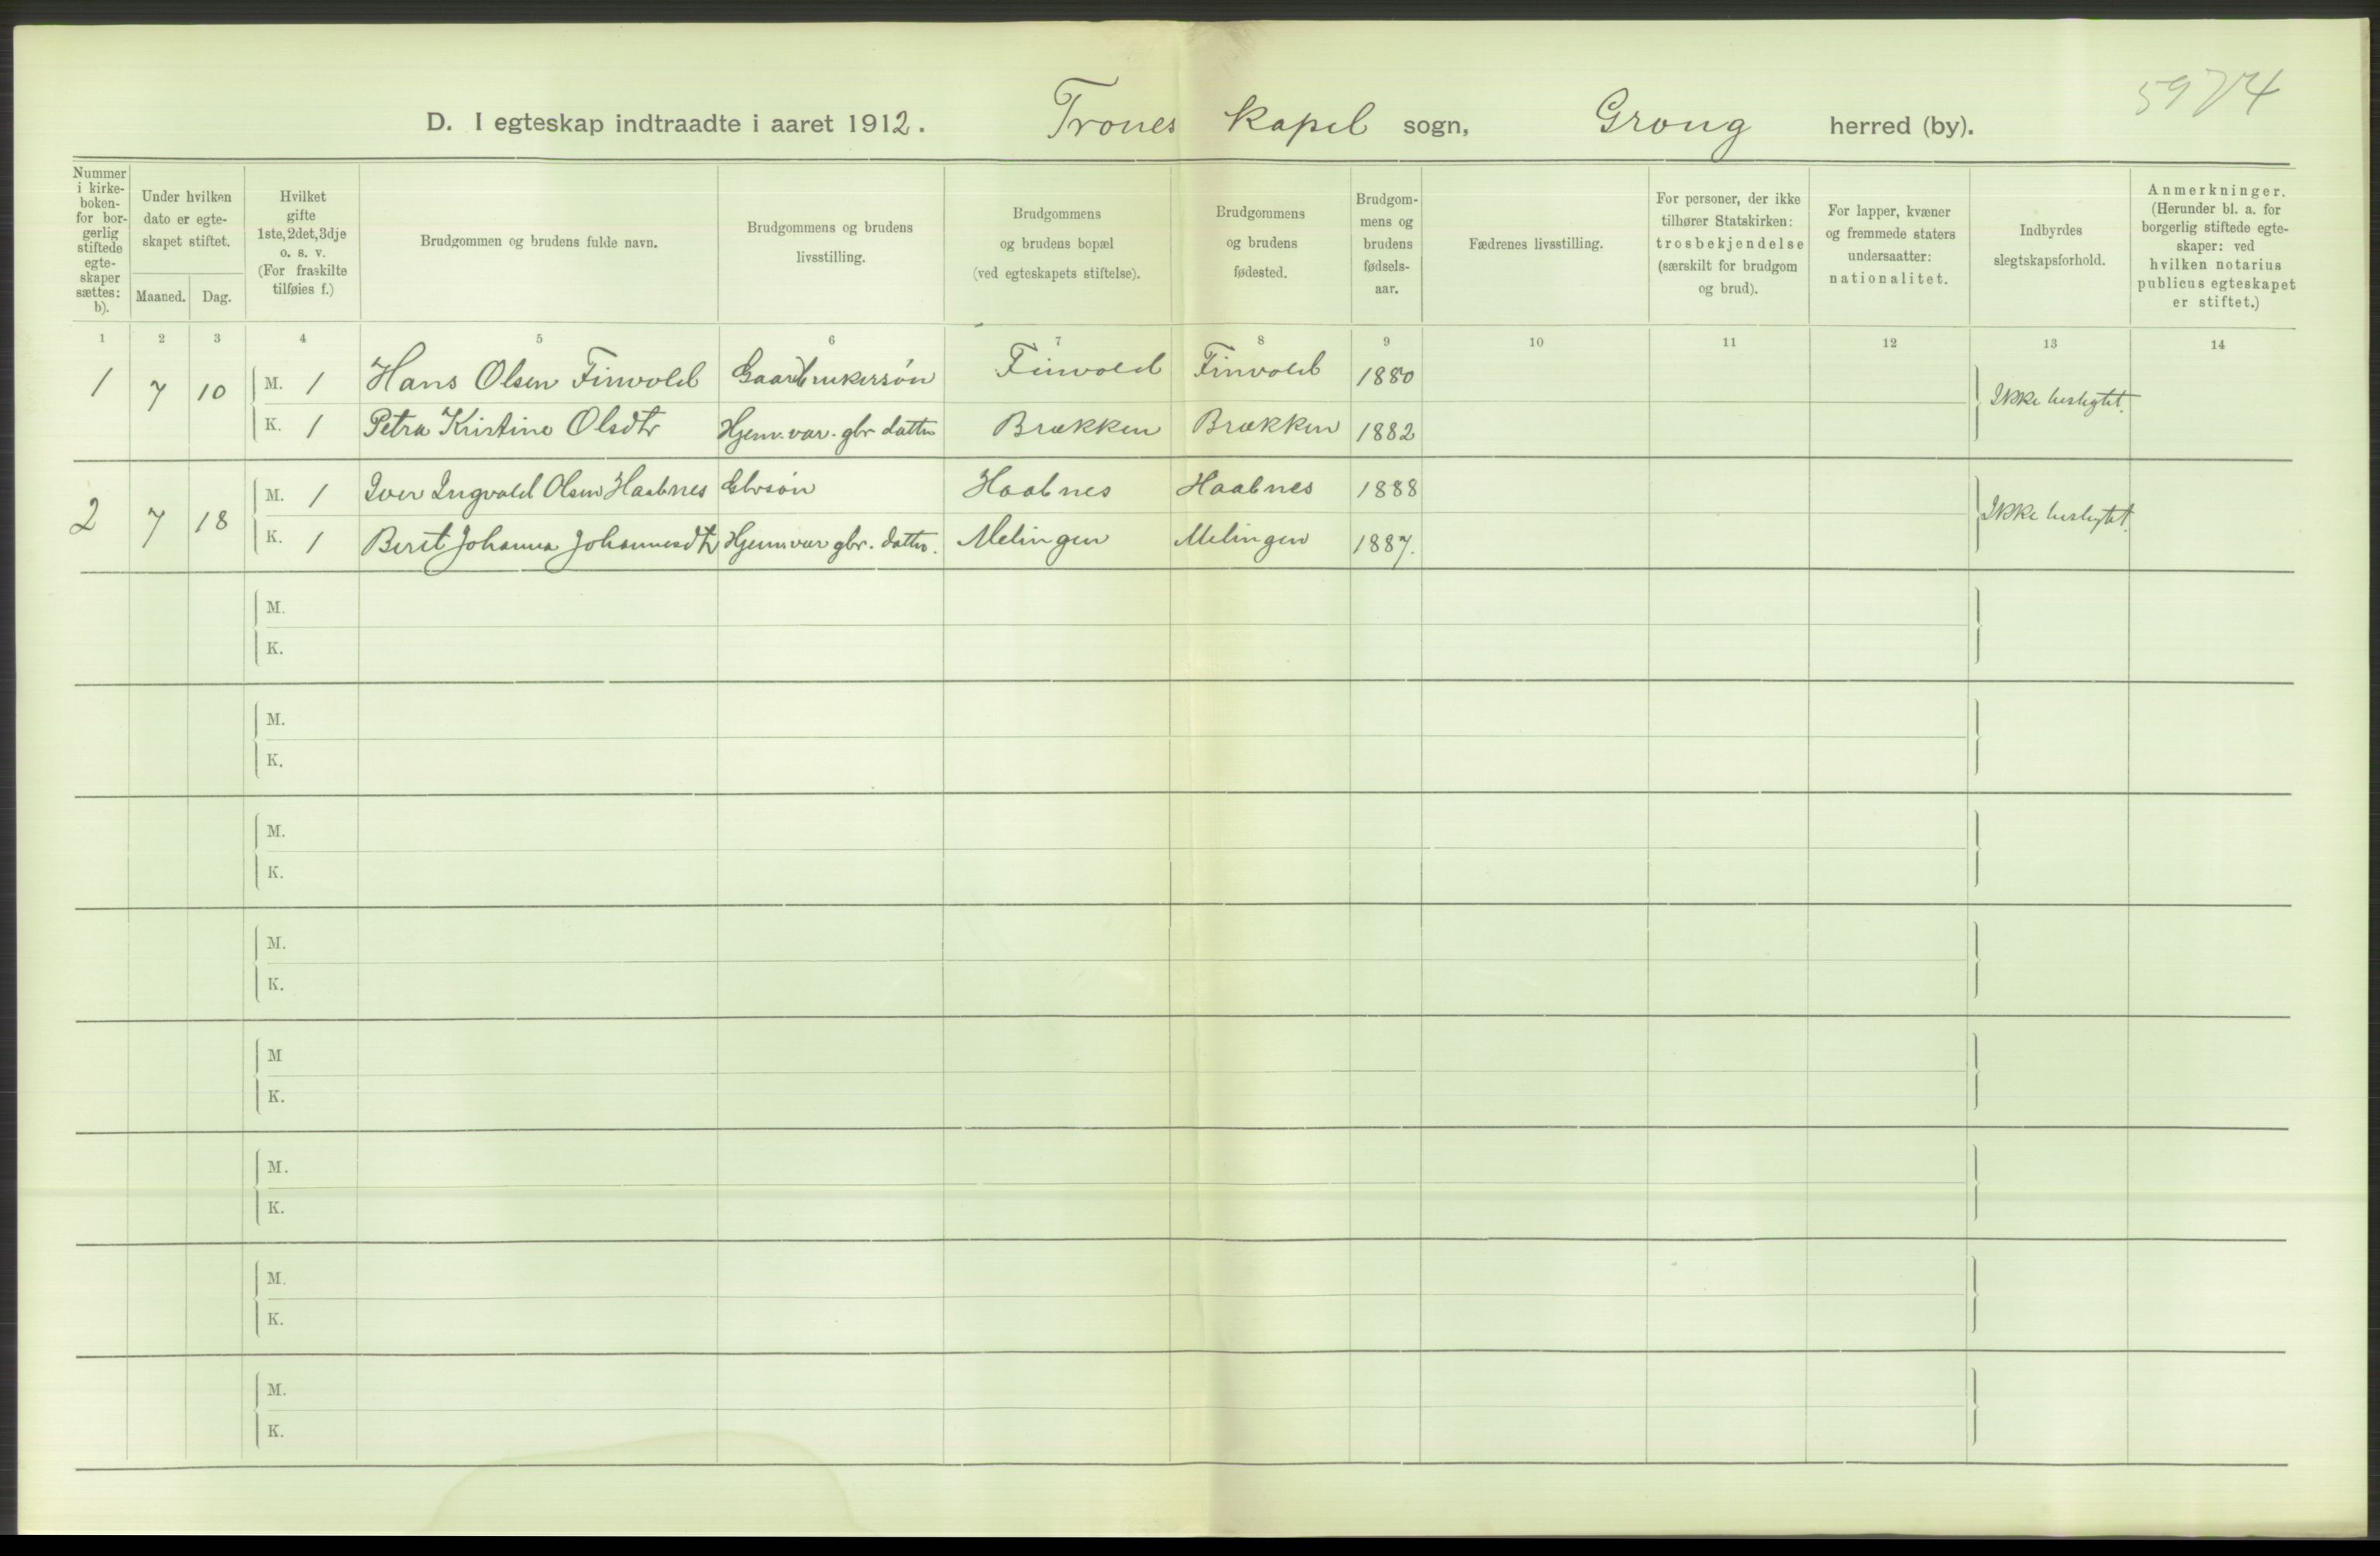 5974
D. I egteskap indtraadte i aaret 1912. Trones Kapel sogn, Grong herred (by).
Nummer i kirke-boken- for bor-gerlig stiftede egte-skaper sættes: b).
Under hvilken dato er egte-skapet stiftet.
Maaned. Dag.
Hvilket gifte 1ste, 2det, 3dje o. s. v. (For fraskilte tilføies f.)
Brudgommen og brudens fulde navn.
Brudgommens og brudens livsstilling.
Brudgommens og brudens bopæl (ved egteskapets stiftelse).
Brudgommens og brudens fødested.
Brudgom-mens og brudens fødsels-aar.
Fædrenes livsstilling.
For personer, der ikke tilhører Statskirken: trosbekjendelse (særskilt for brudgom og brud).
For lapper, kvæner og fremmede staters undersaatter: nationalitet.
Indbyrdes slegtskapsforhold.
Anmerkninger. (Herunder bl. a. for borgerlig stiftede egte-skaper: ved hvilken notarius publicus egteskapet er stiftet.)
1 2 3 4 5 6 7 8 9 10 11 12 13 14
1 7 10 M. 1 Hans Olsen Finvold Gaardbrukersøn Finvold Finvold 1880 Ikke beslegtet.
K. 1 Petra Kristine Olsdtr Hjem. vær. gbr datter Brækken Brækken 1882
2 7 18 M. 1 Iver Ingvald Olsen Haabnes Gbrsøn Haabnes Haabnes 1888 Ikke beslegtet.
K. 1 Berit Johanna Johannesdtr Hjemvær gbr. datter. Melingen Melingen 1887.
M.
K.
M.
K.
M.
K.
M.
K.
M
K.
M.
K.
M.
K.
M.
K.